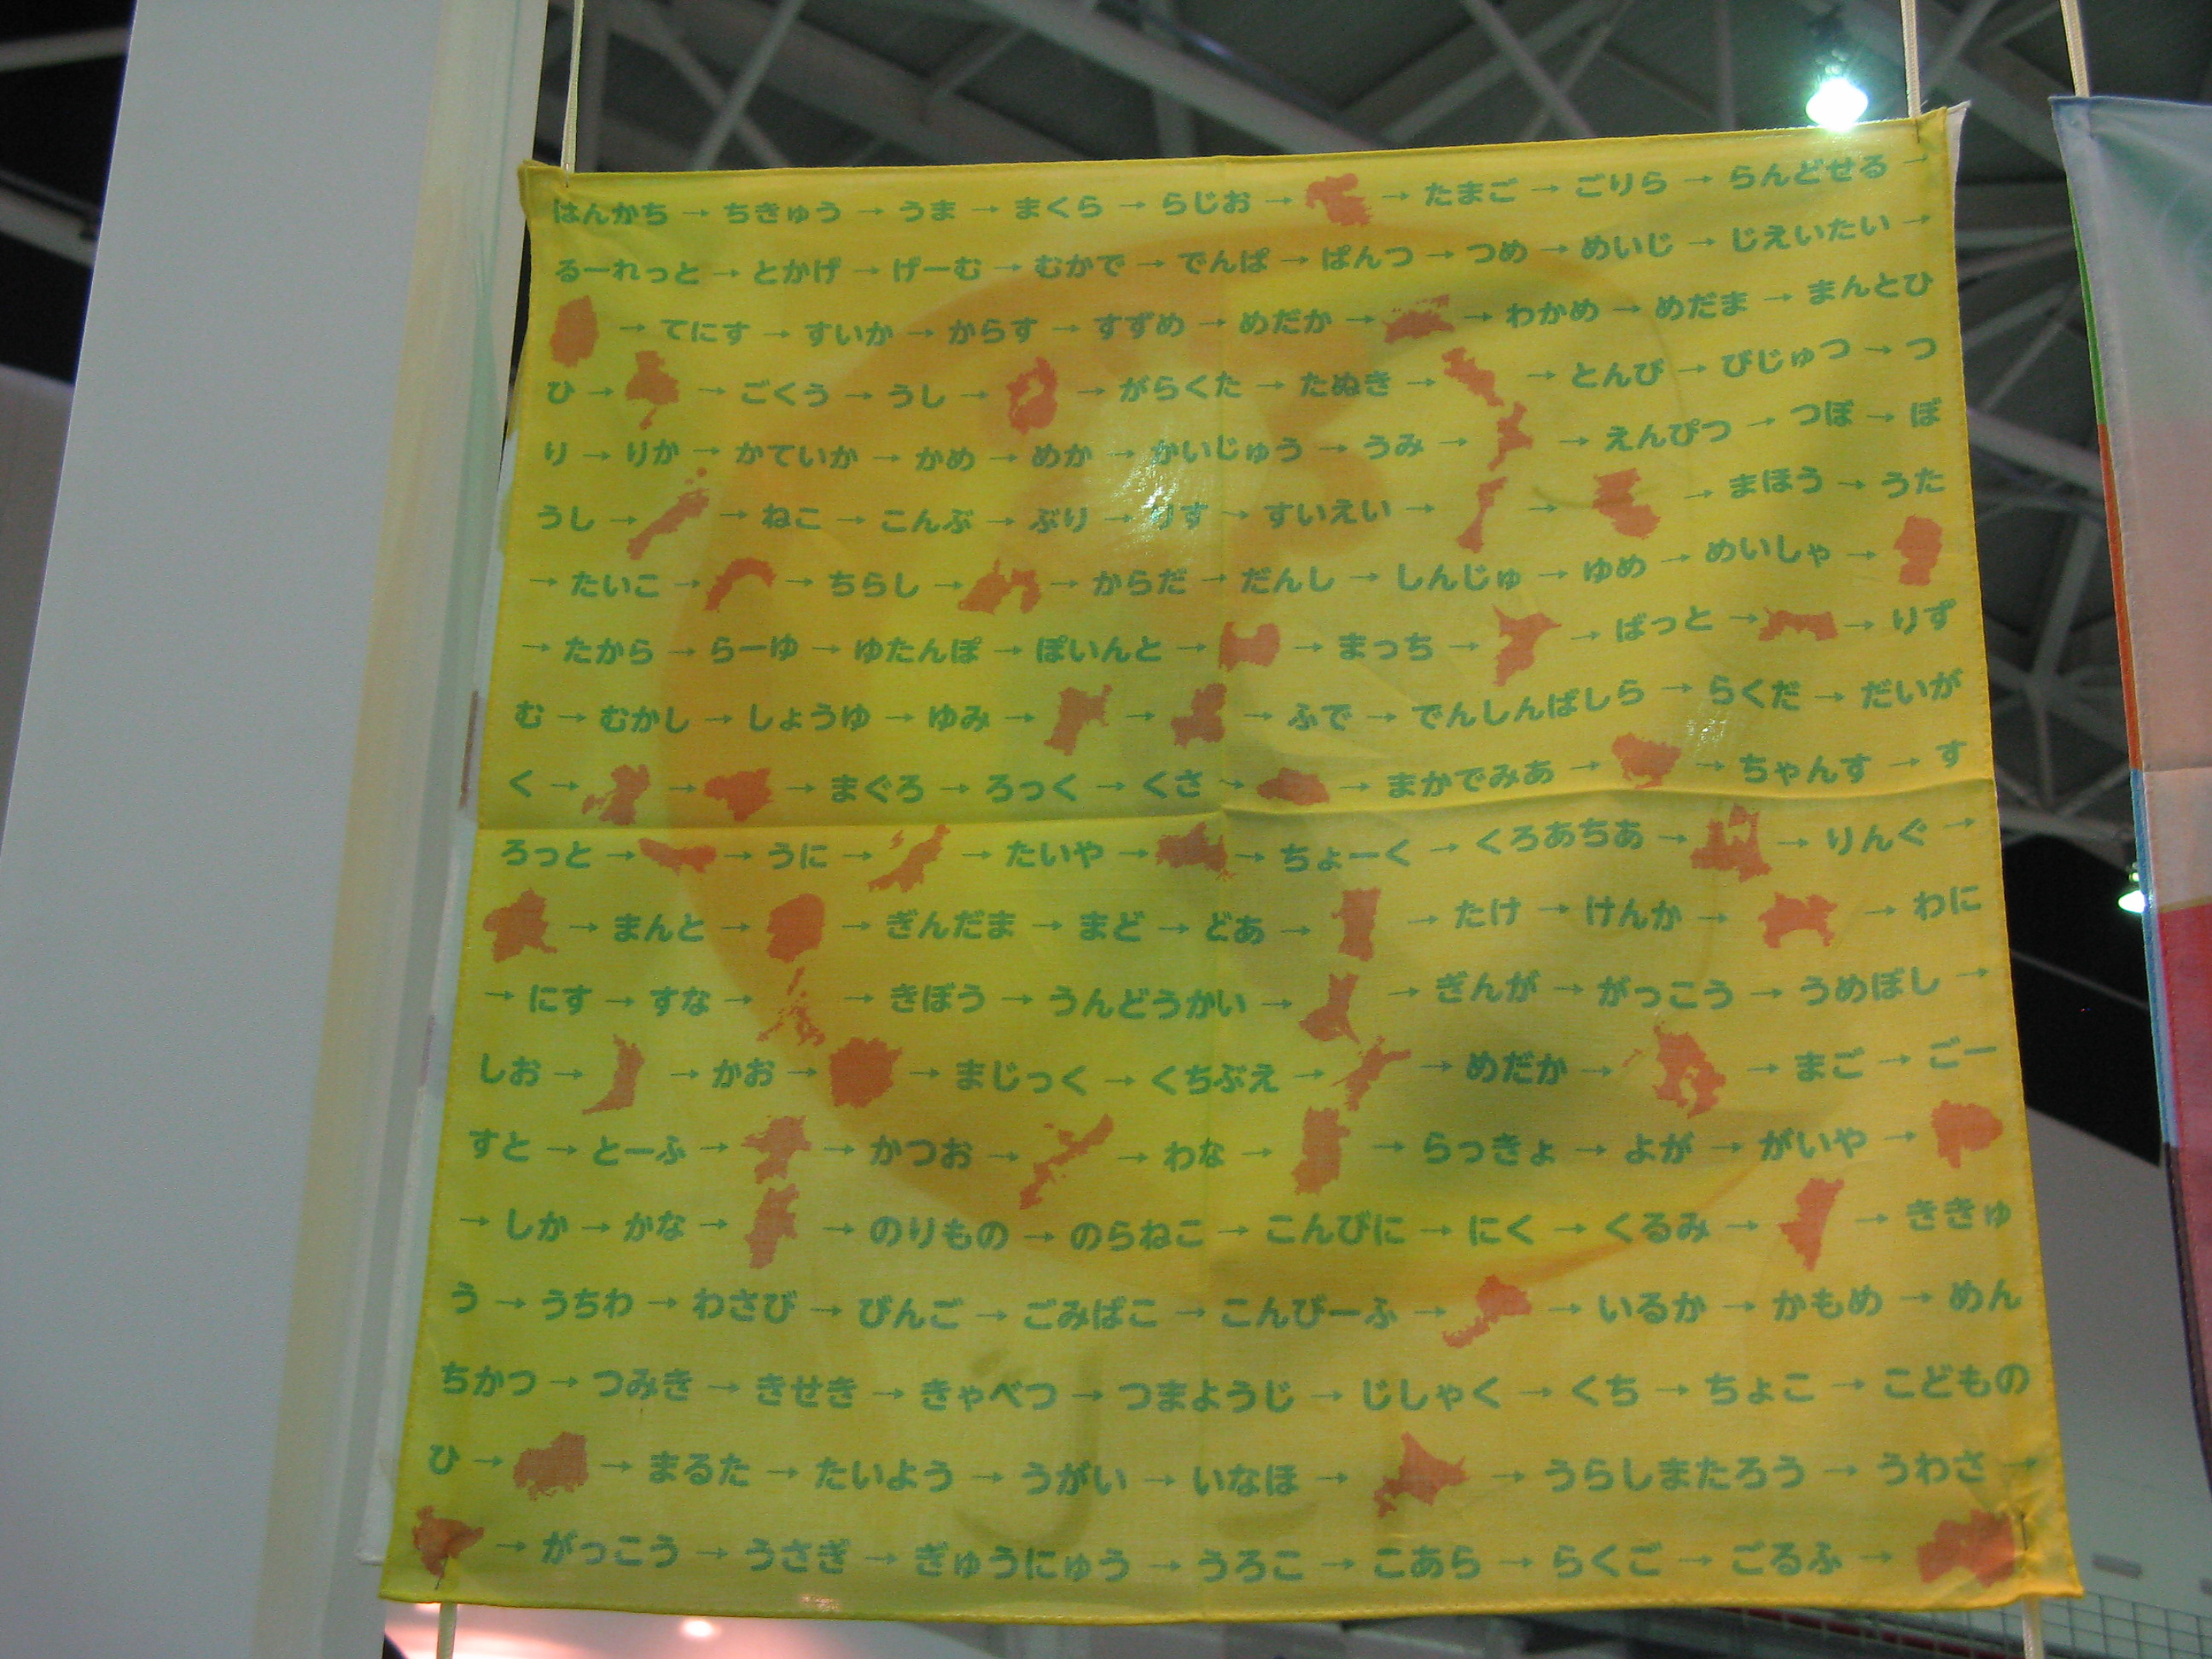 はんかち→ちきゅう→うま→まくら→らじお→ →たまご→ごりら→らんどせる→
るーれっと→とかげ→げーむ→むかで→でんぱ→ぱんつ→つめ→めいじ→じえいたい→
→てにす→すいか→からす→すずめ→めだか→ →わかめ→めだま→まんとひ
ひ→ →ごくう→うし→ →がらくた→たぬき→ →とんび→びじゅつ→つ
り→りか→かていか→かめ→めか→かいじゅう→うみ→ →えんぴつ→つぼ→ぼ
うし→ →ねこ→こんぶ→ぶり→りす→すいえい→ → →まほう→うた
→たいこ→ →ちらし→ →からだ→だんし→しんじゅ→ゆめ→めいしゃ→
→たから→らーゆ→ゆたんぽ→ぽいんと→ →まっち→ →ばっと→ →りず
む→むかし→しょうゆ→ゆみ→ → →ふで→でんしんばしら→らくだ→だいが
く→ → →まぐろ→ろっく→くさ→ →まかでみあ→ →ちゃんす→す
ろっと→ →うに→ →たいや→ →ちょーく→くろあちあ→ →りんぐ→
→まんと→ →ぎんだま→まど→どあ→ →たけ→けんか→ →わに
→にす→すな→ →きぼう→うんどうかい→ →ぎんが→がっこう→うめぼし→
しお→ →かお→ →まじっく→くちぶえ→ →めだか→ →まご→ごー
すと→とーふ→ →かつお→ →わな→ →らっきょ→よが→がいや→
→しか→かな→ →のりもの→のらねこ→こんびに→にく→くるみ→ →ききゅ
う→うちわ→わさび→びんご→ごみばこ→こんびーふ→ →いるか→かもめ→めん
ちかつ→つみき→きせき→きゃべつ→つまようじ→じしゃく→くち→ちょこ→こどもの
ひ→ →まるた→たいよう→うがい→いなほ→ →うらしまたろう→うわさ→
→がっこう→うさぎ→ぎゅうにゅう→うろこ→こあら→らくご→ごるふ→